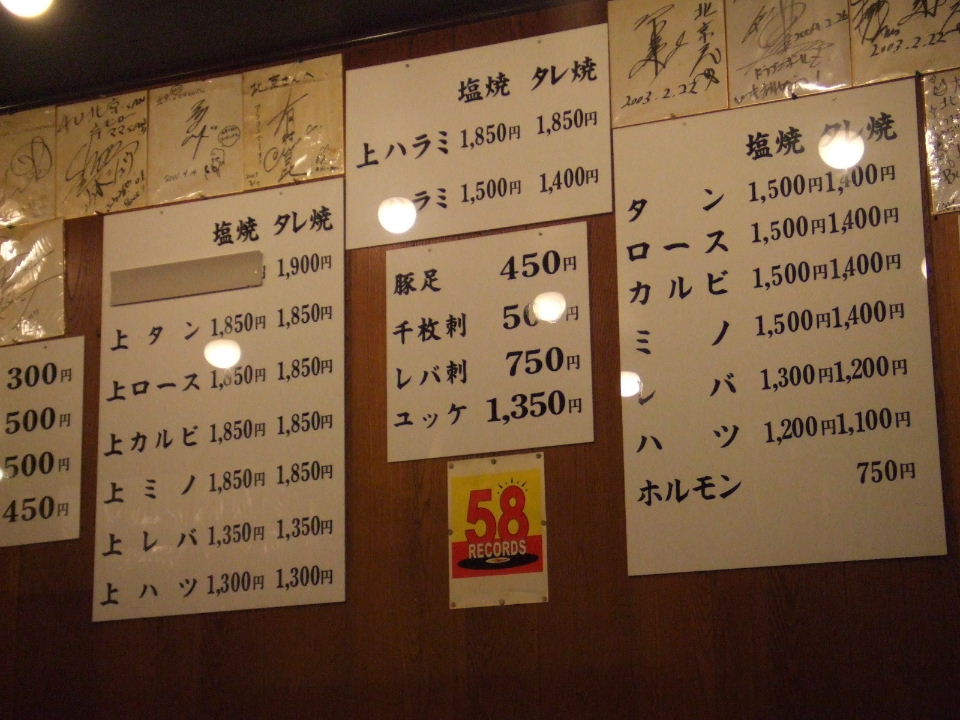 300円
500円
500円
450円
塩焼 タレ焼
1,900円
上タン 1,850円 1,850円
上ロース 1,850円 1,850円
上カルビ 1,850円 1,850円
上ミノ 1,850円 1,850円
上レバ 1,350円 1,350円
上ハツ 1,300円 1,300円
塩焼 タレ焼
上ハラミ 1,850円 1,850円
ラミ 1,500円 1,400円
豚足 450円
千枚刺 50 円
レバ刺 750円
ユッケ 1,350円
58
RECORDS
塩焼 タレ焼
タン 1,500円 1,400円
ロース 1,500円 1,400円
カルビ 1,500円 1,400円
ミノ 1,500円 1,400円
レバ 1,300円 1,200円
ハツ 1,200円 1,100円
ホルモン 750円
2003.2.22
2003.2.22